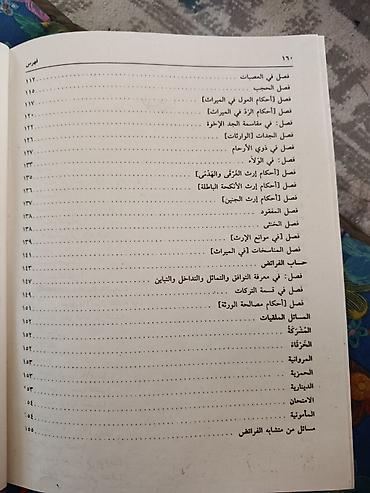 ١٦٠ فهرس
فصل في العصبات ١١٢
فصل في الحجب ١١٥
فصل [أحكام العول في الميراث] ١١٧
فصل [أحكام الرَّدّ في الميراث] ١٢٠
فصل: في مقاسمة الجد الإخوة ١٢٢
فصل: الجدات [الوارثات] ١٢٦
فصل في ذوي الأرحام ١٢٧
فصل: في الوَلاَء ١٣٣
فصل [أحكام إرث الغَرْقَى والهَدْمَى] ١٣٥
فصل [أحكام إرث الأنكحة الباطلة] ١٣٦
فصل [أحكام إرث الجنين] ١٣٧
فصل: المفقود ١٣٨
فصل: الخنثى ١٣٨
فصل [في موانع الإرث] ١٣٩
فصل: المناسخات [في الميراث] ١٤١
حساب الفرائض ١٤٣
فصل: في معرفة التوافق والتماثل والتداخل والتباين ١٤٧
فصل في قسمة التركات ١٤٩
فصل [أحكام مصالحة الورثة] ١٥١
المسائل الملقبات ١٥٢
المُشْرَكَةُ ١٥٢
الخَرْقَاءُ ١٥٢
المروانية ١٥٣
الحمزية ١٥٣
الدينارية ١٥٣
الامتحان ١٥٤
المأمونية ١٥٤
مسائل من متشابه الفرائض ١٥٥